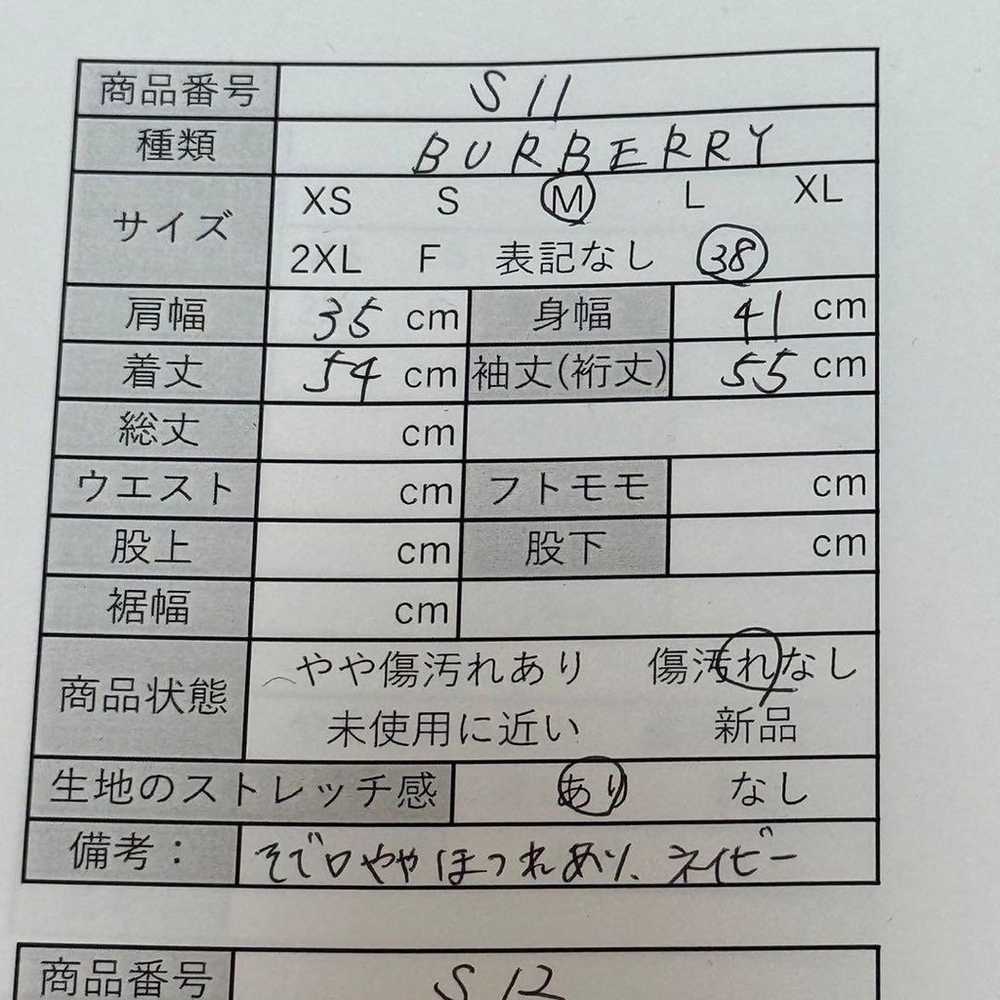 商品番号 S11
種類 BURBERRY
サイズ XS S M L XL
2XL F 表記なし 38
肩幅 35 cm 身幅 41 cm
着丈 54 cm 袖丈(裄丈) 55 cm
総丈 cm
ウエスト cm フトモモ cm
股上 cm 股下 cm
裾幅 cm
商品状態 やや傷汚れあり 傷汚れなし
未使用に近い 新品
生地のストレッチ感 あり なし
備考： そで口ややほつれあり、ネイビー
商品番号 S12